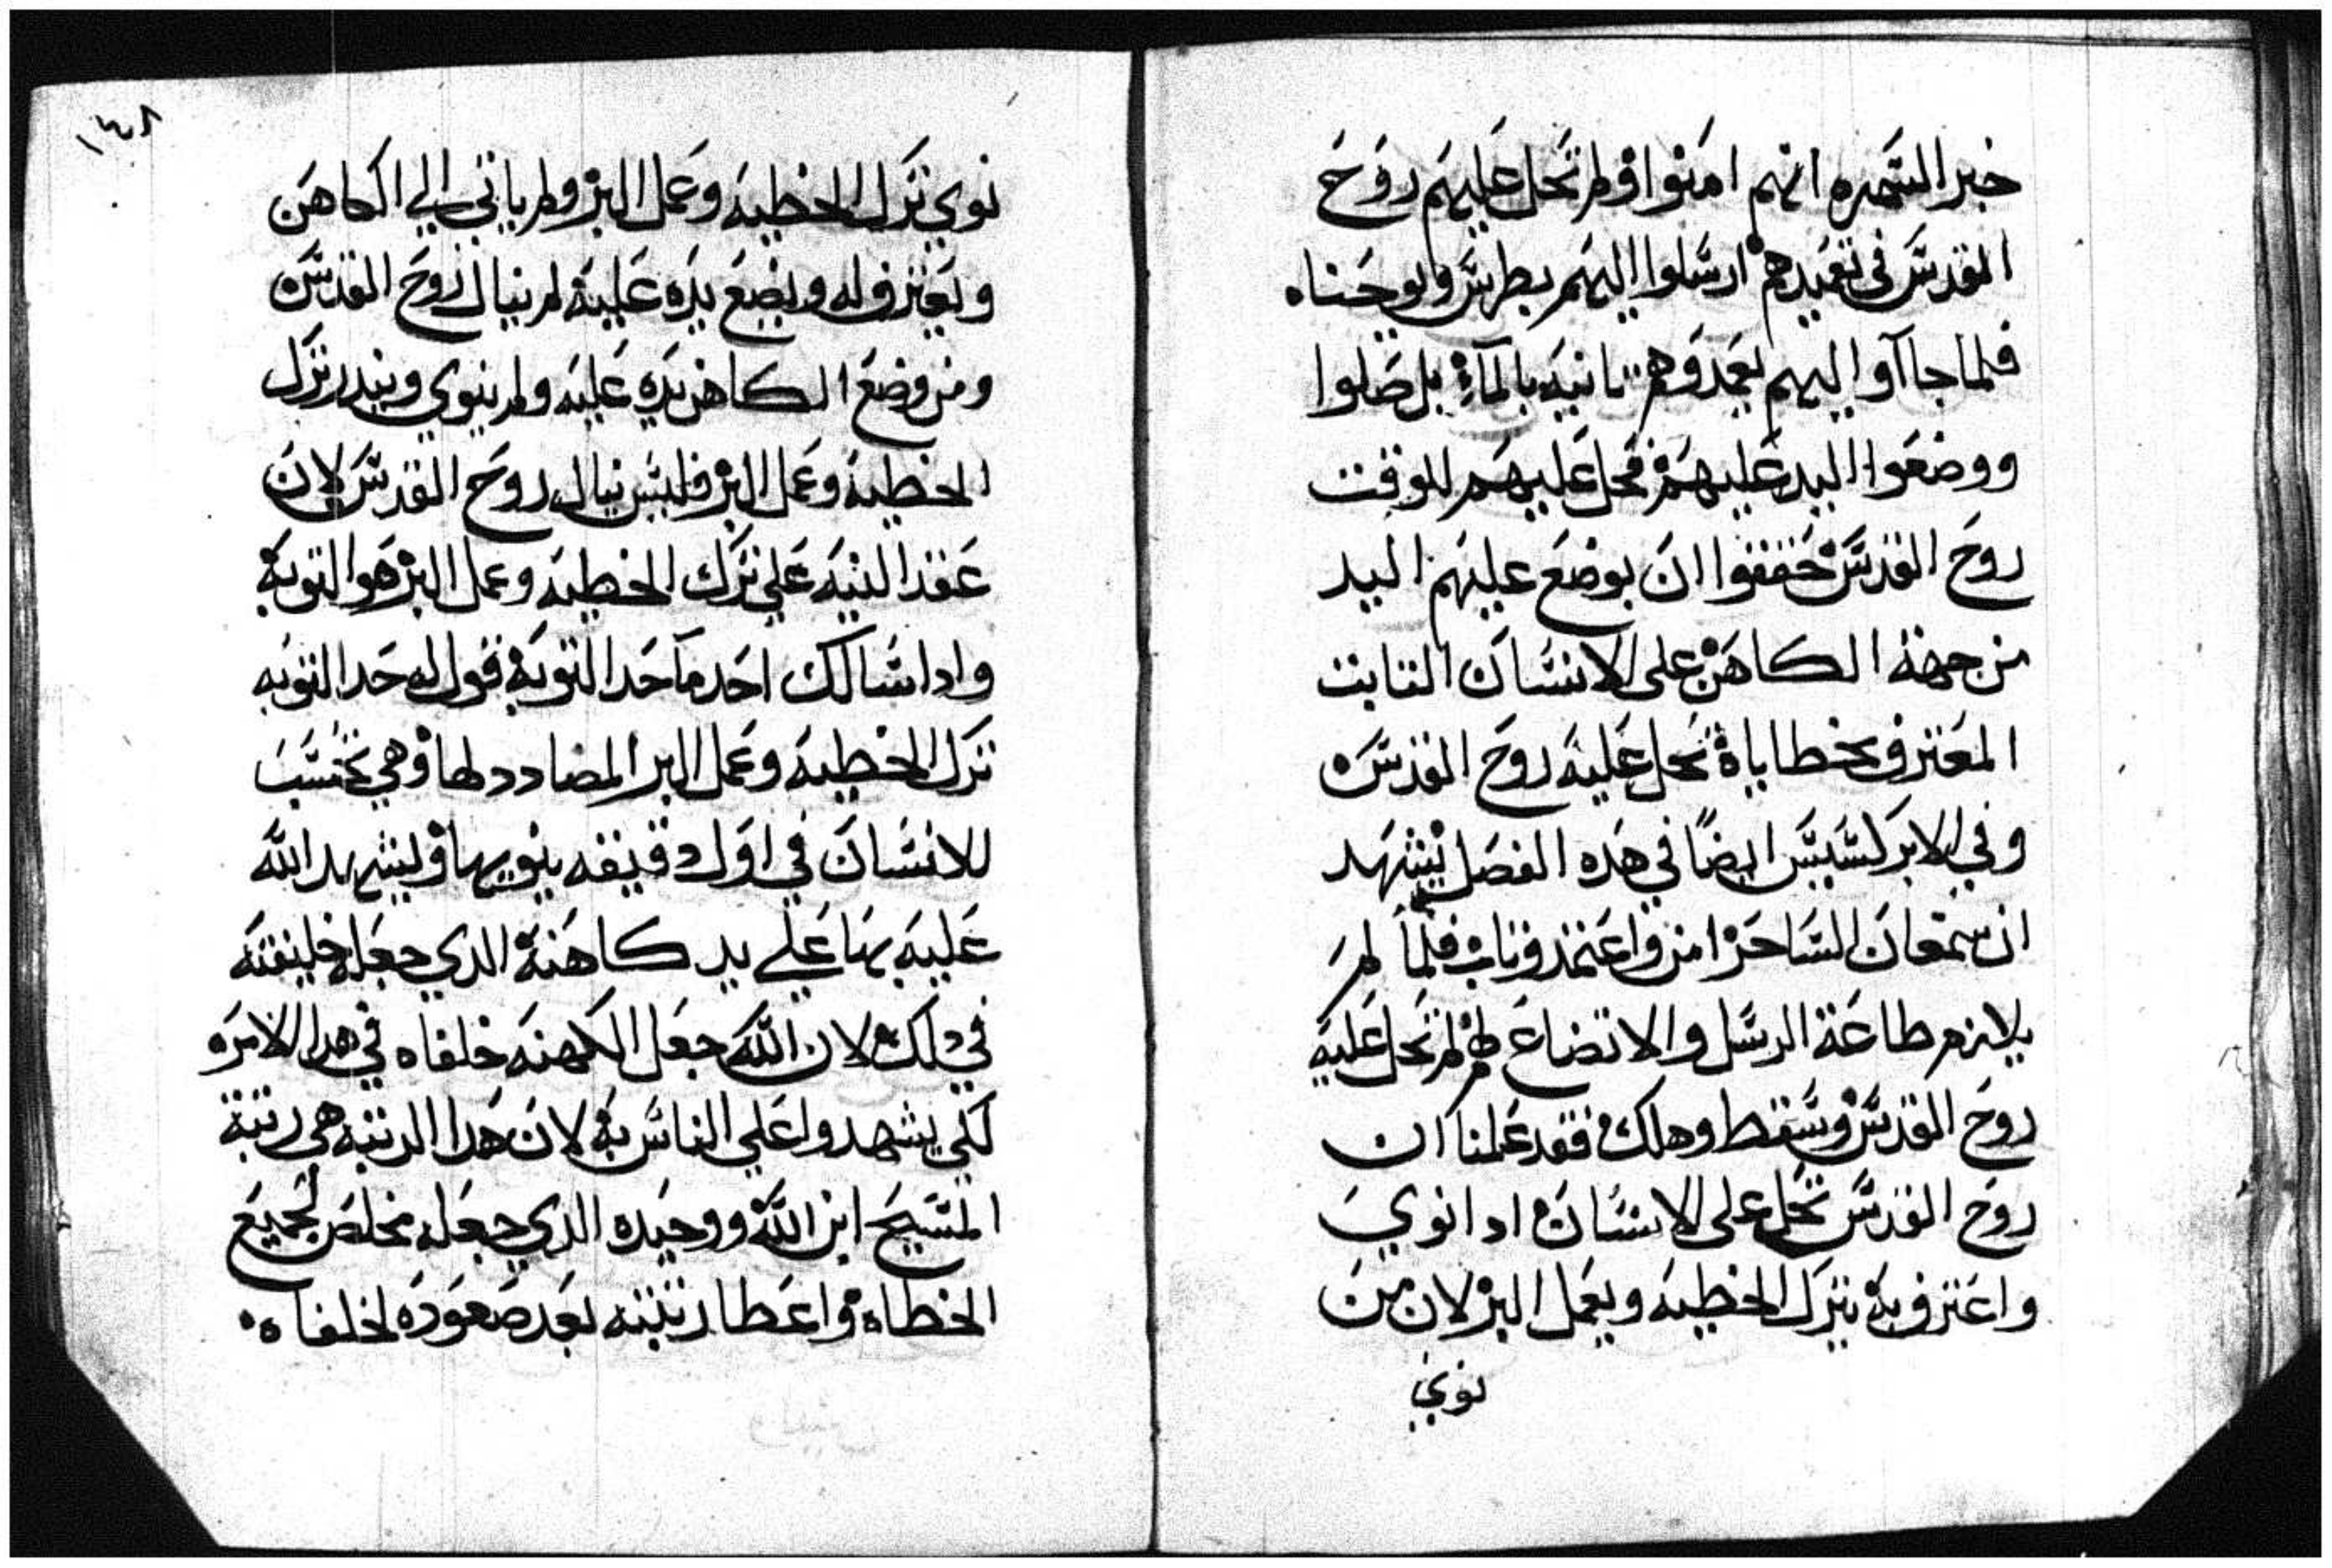 خبر السمره انهم امنوا ولم تحل عليهم روح
القدس في تعميدهم ارسلوا اليهم بطرس ويوحنا ه
فلما جاآوا اليهم يعمدوهم تانيه بالمآء بل صلوا
ووضعوا اليد عليهم فحل عليهم للوقت
روح القدس فحققوا ان بوضع عليهم اليد
من جهة الكاهن على الانسان التايت
المعترف بخطاياه تحل عليه روح القدس ه
وفي الابركسيس ايضًا في هده الفصل يشهد
ان سمعان الساحر امن واعتمد وتاب فلما لم
يلازم طاعة الرسل والاتضاع لهم لم تحل عليه
روح القدس وسقط وهلك فقد علمنا ان
روح القدس تحل على الانسان ادا نوي
واعترف به بترك الخطيه ويعمل البر لان من
نوي
١٤٨
نوي ترك الخطيه وعمل البر ولم ياتي الي الكاهن
ويعترف له ويضع يده عليه لم ينال روح القدس ه
ومن وضع الكاهن يده عليه ولم ينوي ويندر ترك
الخطيه وعمل البر فليس ينال روح القدس لان
عقد النيه علي ترك الخطيه وعمل البر هو التوبه
وادا سالك احد ما حد التوبه قول له حد التوبه
ترك الخطيه وعمل البر المضادد لها وهي تحتسب
للانسان في اول دقيقه ينويها ويشهد الله
عليه بها علي يد كاهنه الدي جعله خليفته
في دلك لان الله جعل الكهنه خلفاه في هدا الامر ه
لكي يشهدوا علي الناس به لان هدا الرتبه هي رتبة
المسيح ابن الله ووحيده الدي جعله مخلص لجميع
الخطاه واعطا رتبته بعد صعوده لخلفاه ه